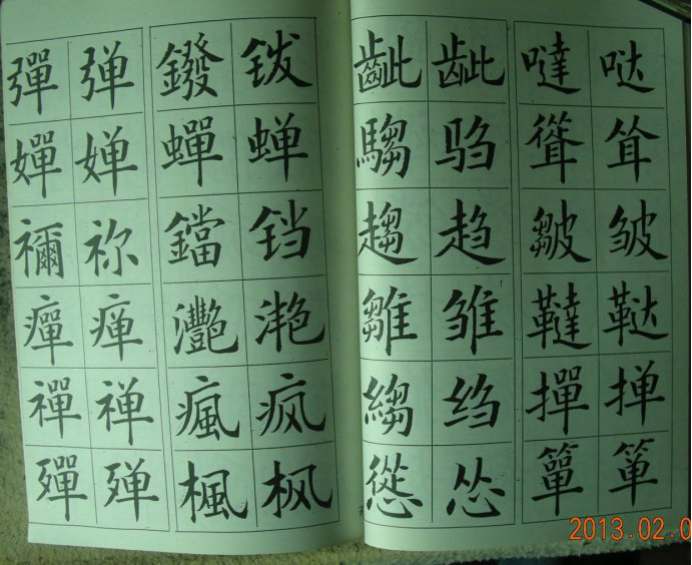 彈 弹 鏺 䥽 齜 龇 噠 哒
嬋 婵 蟬 蝉 騶 驺 聳 耸
禰 祢 鐺 铛 趨 趋 皺 皱
癉 瘅 灩 滟 雛 雏 韃 鞑
禪 禅 瘋 疯 縐 绉 撣 掸
殫 殚 楓 枫 慫 怂 簞 箪
2013.02.0